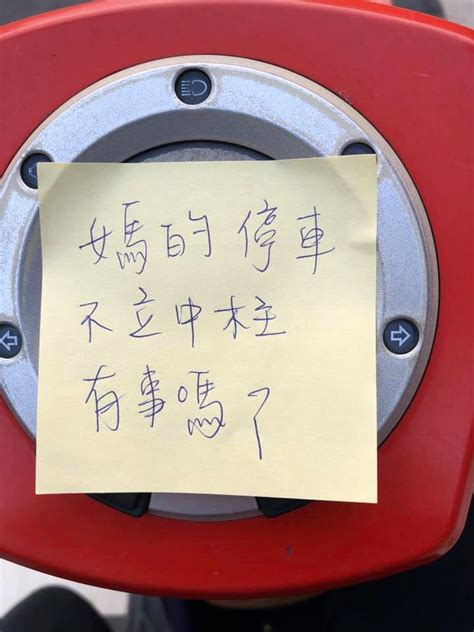 媽的停車
不立中柱
有事嗎?